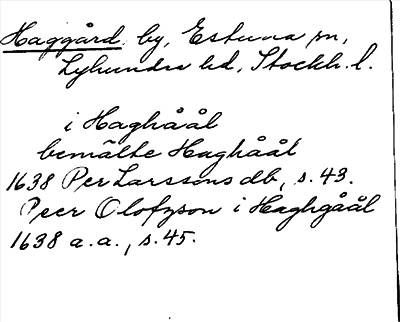 Haggård. by, Estuna sn,
Lyhundra hd, Stockh. l.
i Haghåål
bemälte Haghåål
1638 Per Larssons db, s. 43.
Peer Olofzson i Haghgåål
1638 a. a., s. 45.